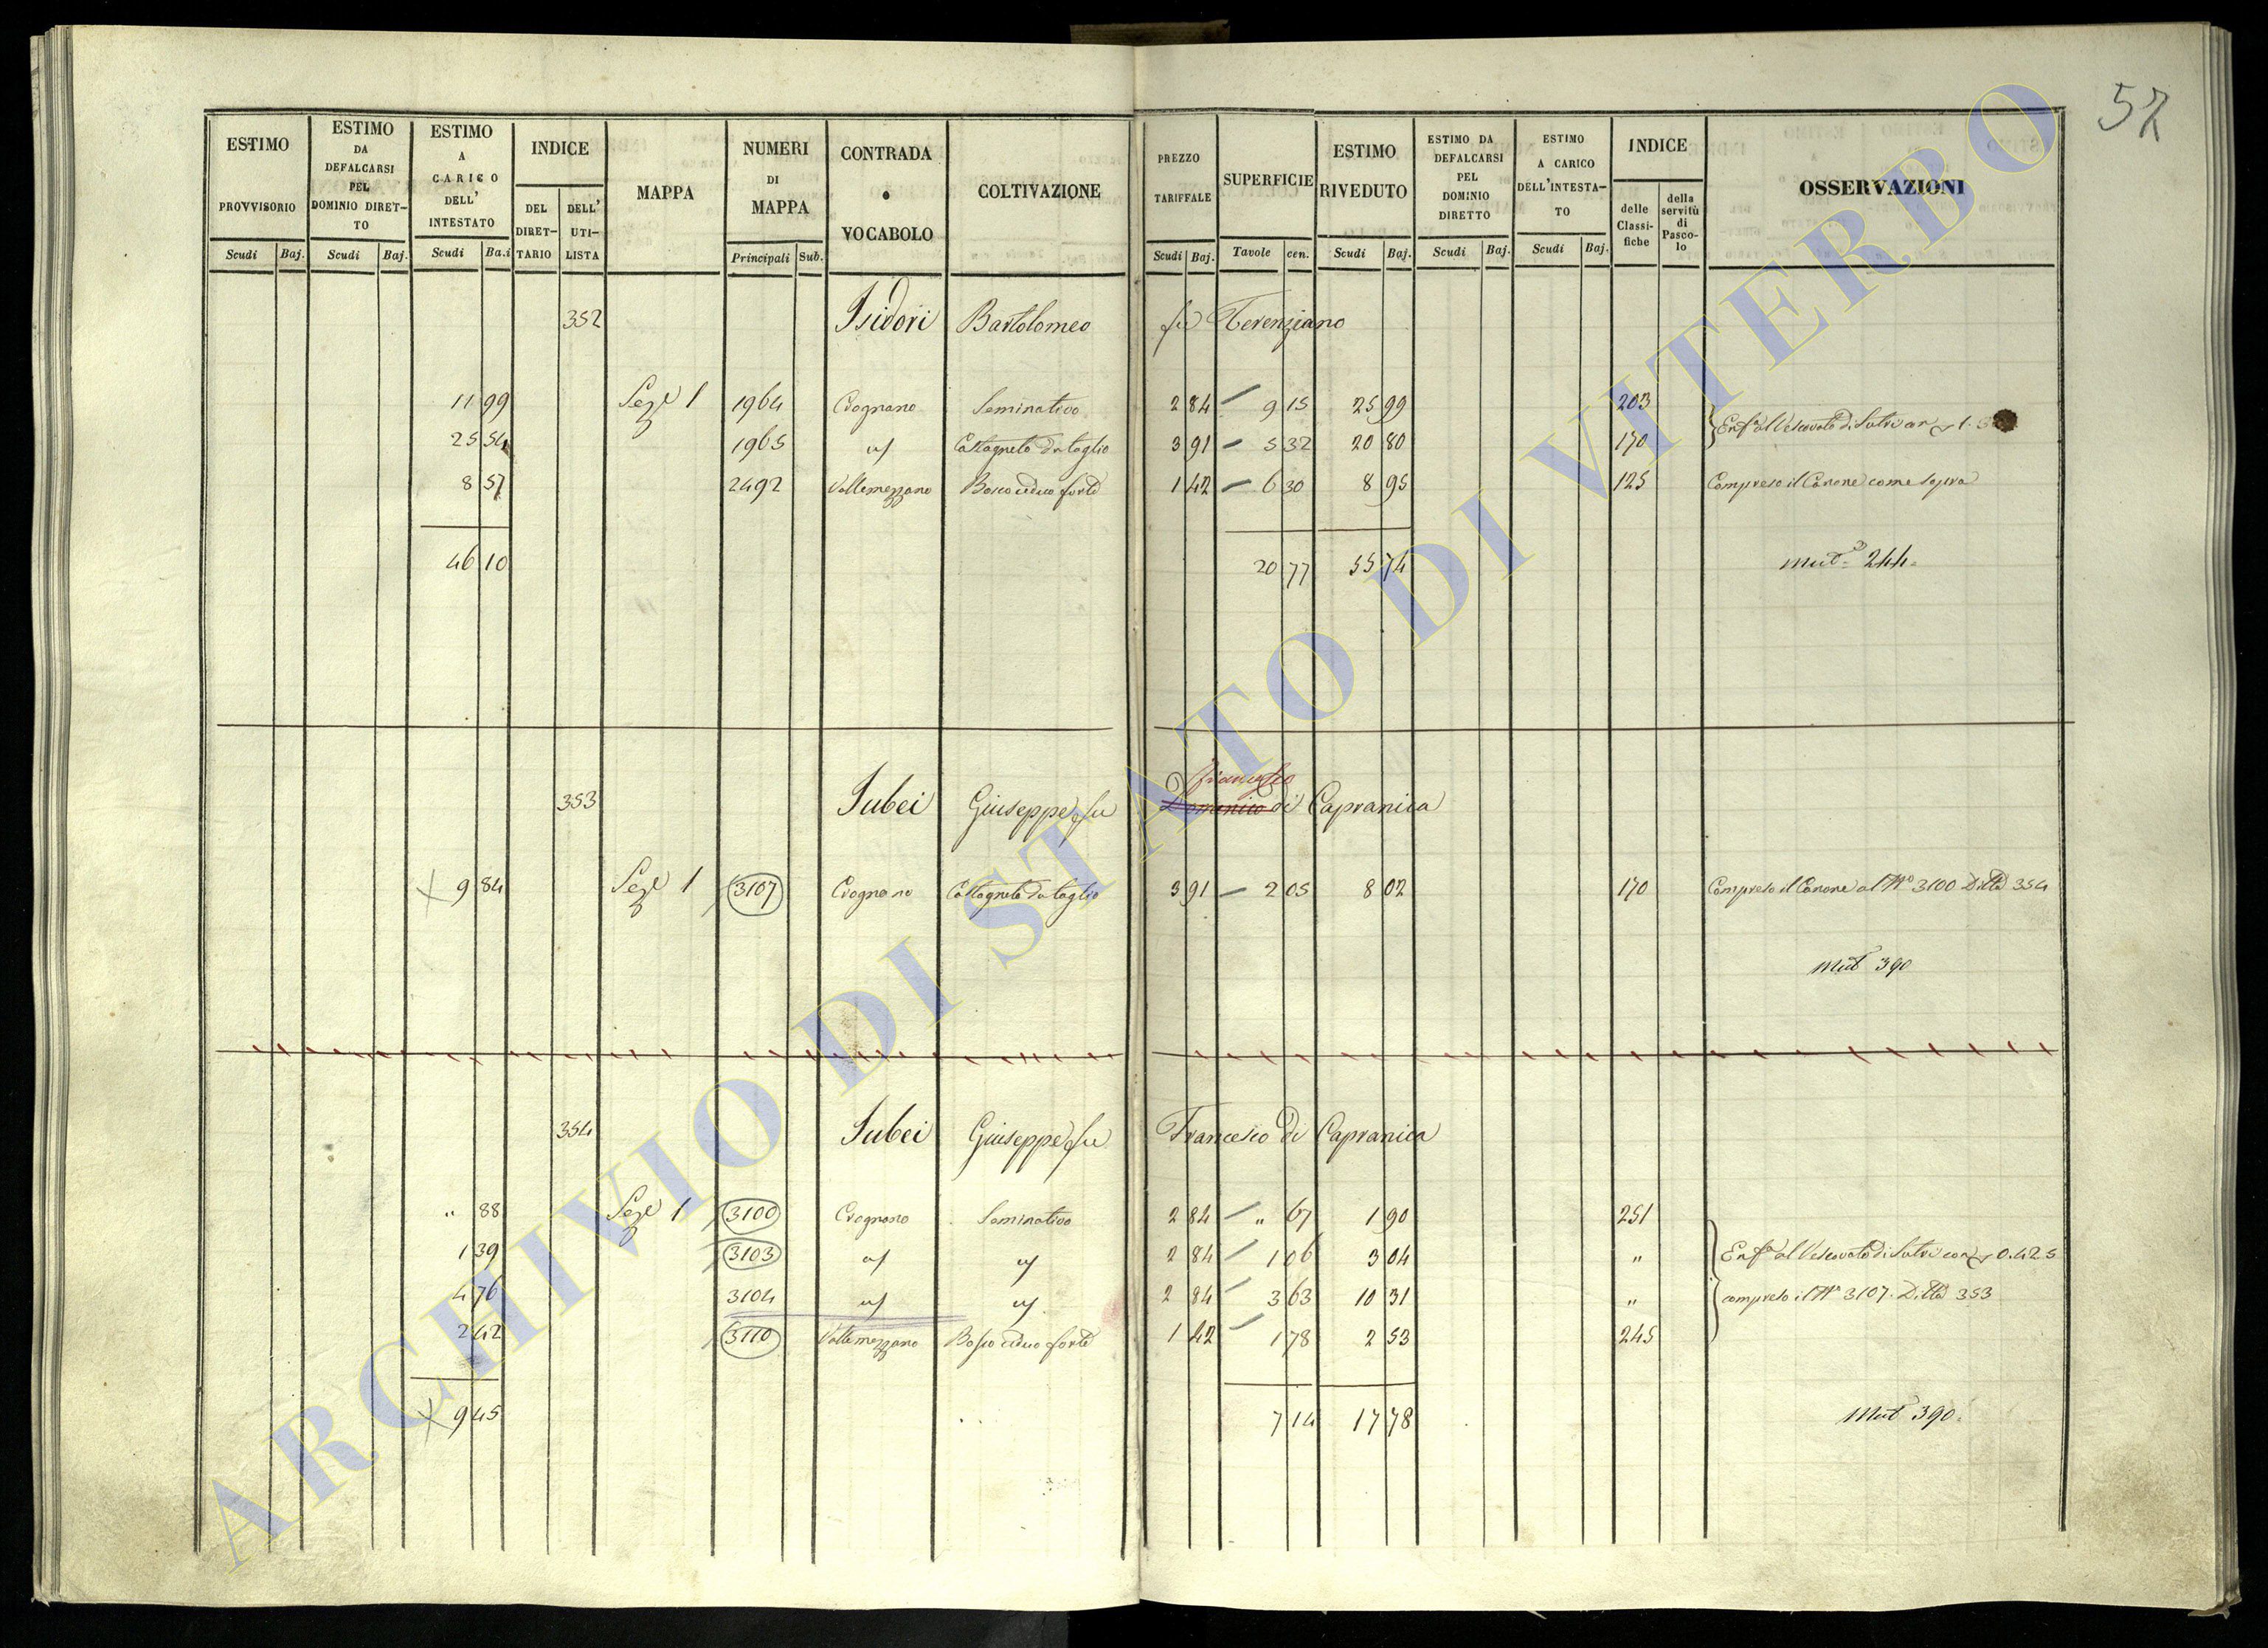 57
ESTIMO PROVVISORIO Scudi Baj.
ESTIMO DA DEFALCARSI PEL DOMINIO DIRET-TO Scudi Baj.
ESTIMO A CARICO DELL' INTESTATO Scudi Ba.i
INDICE DEL DIRET-TARIO DELL' UTI-LISTA
MAPPA
NUMERI DI MAPPA Principali Sub.
CONTRADA o VOCABOLO
COLTIVAZIONE
PREZZO TARIFFALE Scudi Baj.
SUPERFICIE Tavole cen.
ESTIMO RIVEDUTO Scudi Baj.
ESTIMO DA DEFALCARSI PEL DOMINIO DIRETTO Scudi Baj.
ESTIMO A CARICO DELL'INTESTA-TO Scudi Baj.
INDICE delle Classi-fiche della servitù di Pasco-lo
OSSERVAZIONI
352 Isidori Bartolomeo fu Terenziano
11 99 Sez.e 1 1964 Crognano Seminativo 2 84 9 15 25 99 203
25 54 1965 " Castagneto da taglio 3 91 5 32 20 80 170 Enf.a al Vescovato di Sutri
8 57 2492 Vallemezzano Bosco ceduo forte 1 42 6 30 8 95 125 Compreso il Canone come sopra
46 10 20 77 55 74 Mut.e 244.
353 Iubei Giuseppe fu Domenico di Capranica
Francesco
9 84 Sez.e 1 3107 Crognano Castagneto da taglio 3 91 2 05 8 02 170 Compreso il Canone al N.o 3100 Ditta 354
Mut 390
354 Iubei Giuseppe fu Francesco di Capranica
" 88 Sez.e 1 3100 Crognano Seminativo 2 84 " 67 1 90 251
1 39 3103 " " 2 84 1 06 3 04 " Enf.a al Vescovato di Sutri con 0.425
4 76 3104 " " 2 84 3 63 10 31 " compreso il N.o 3107. Ditta 353
2 42 3110 Vallemezzano Bosco ceduo forte 1 42 1 78 2 53 245
9 45 7 14 17 78 Mut 390.
ARCHIVIO DI STATO DI VITERBO